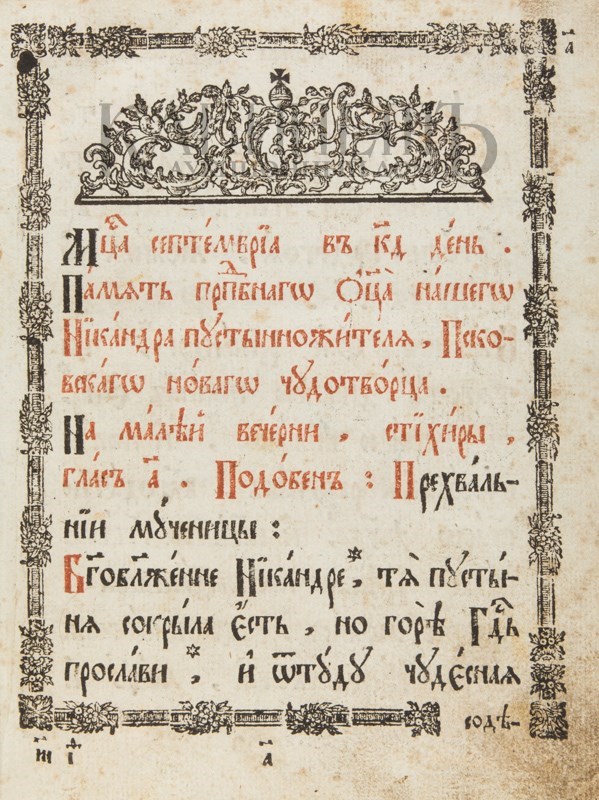 а҃
Мц҇а септе́мврїа въ к҃д де́нь .
Па́мѧть прпⷣбнагѡ ѻ҆ц҃а̀ на́шегѡ
Нїка́ндра пꙋстынножи́телѧ , Пско-
вска́гѡ но́вагѡ чꙋдотво́рца .
На ма́лѣй вече́рни , стїхи́ры ,
гла́съ а҃ . Подо́бенъ : Прехва́ль-
нїи мꙋ́ченицы :
Бг҃обл҃же́нне Нїка́ндре , * тѧ̀ пꙋсты́-
нѧ сокры́ла є҆́сть , но горѣ̀ Гдⷭ҇ь
просла́ви , * и҆ ѿтꙋ́дꙋ чꙋде́снаѧ
содѣ-
а҃